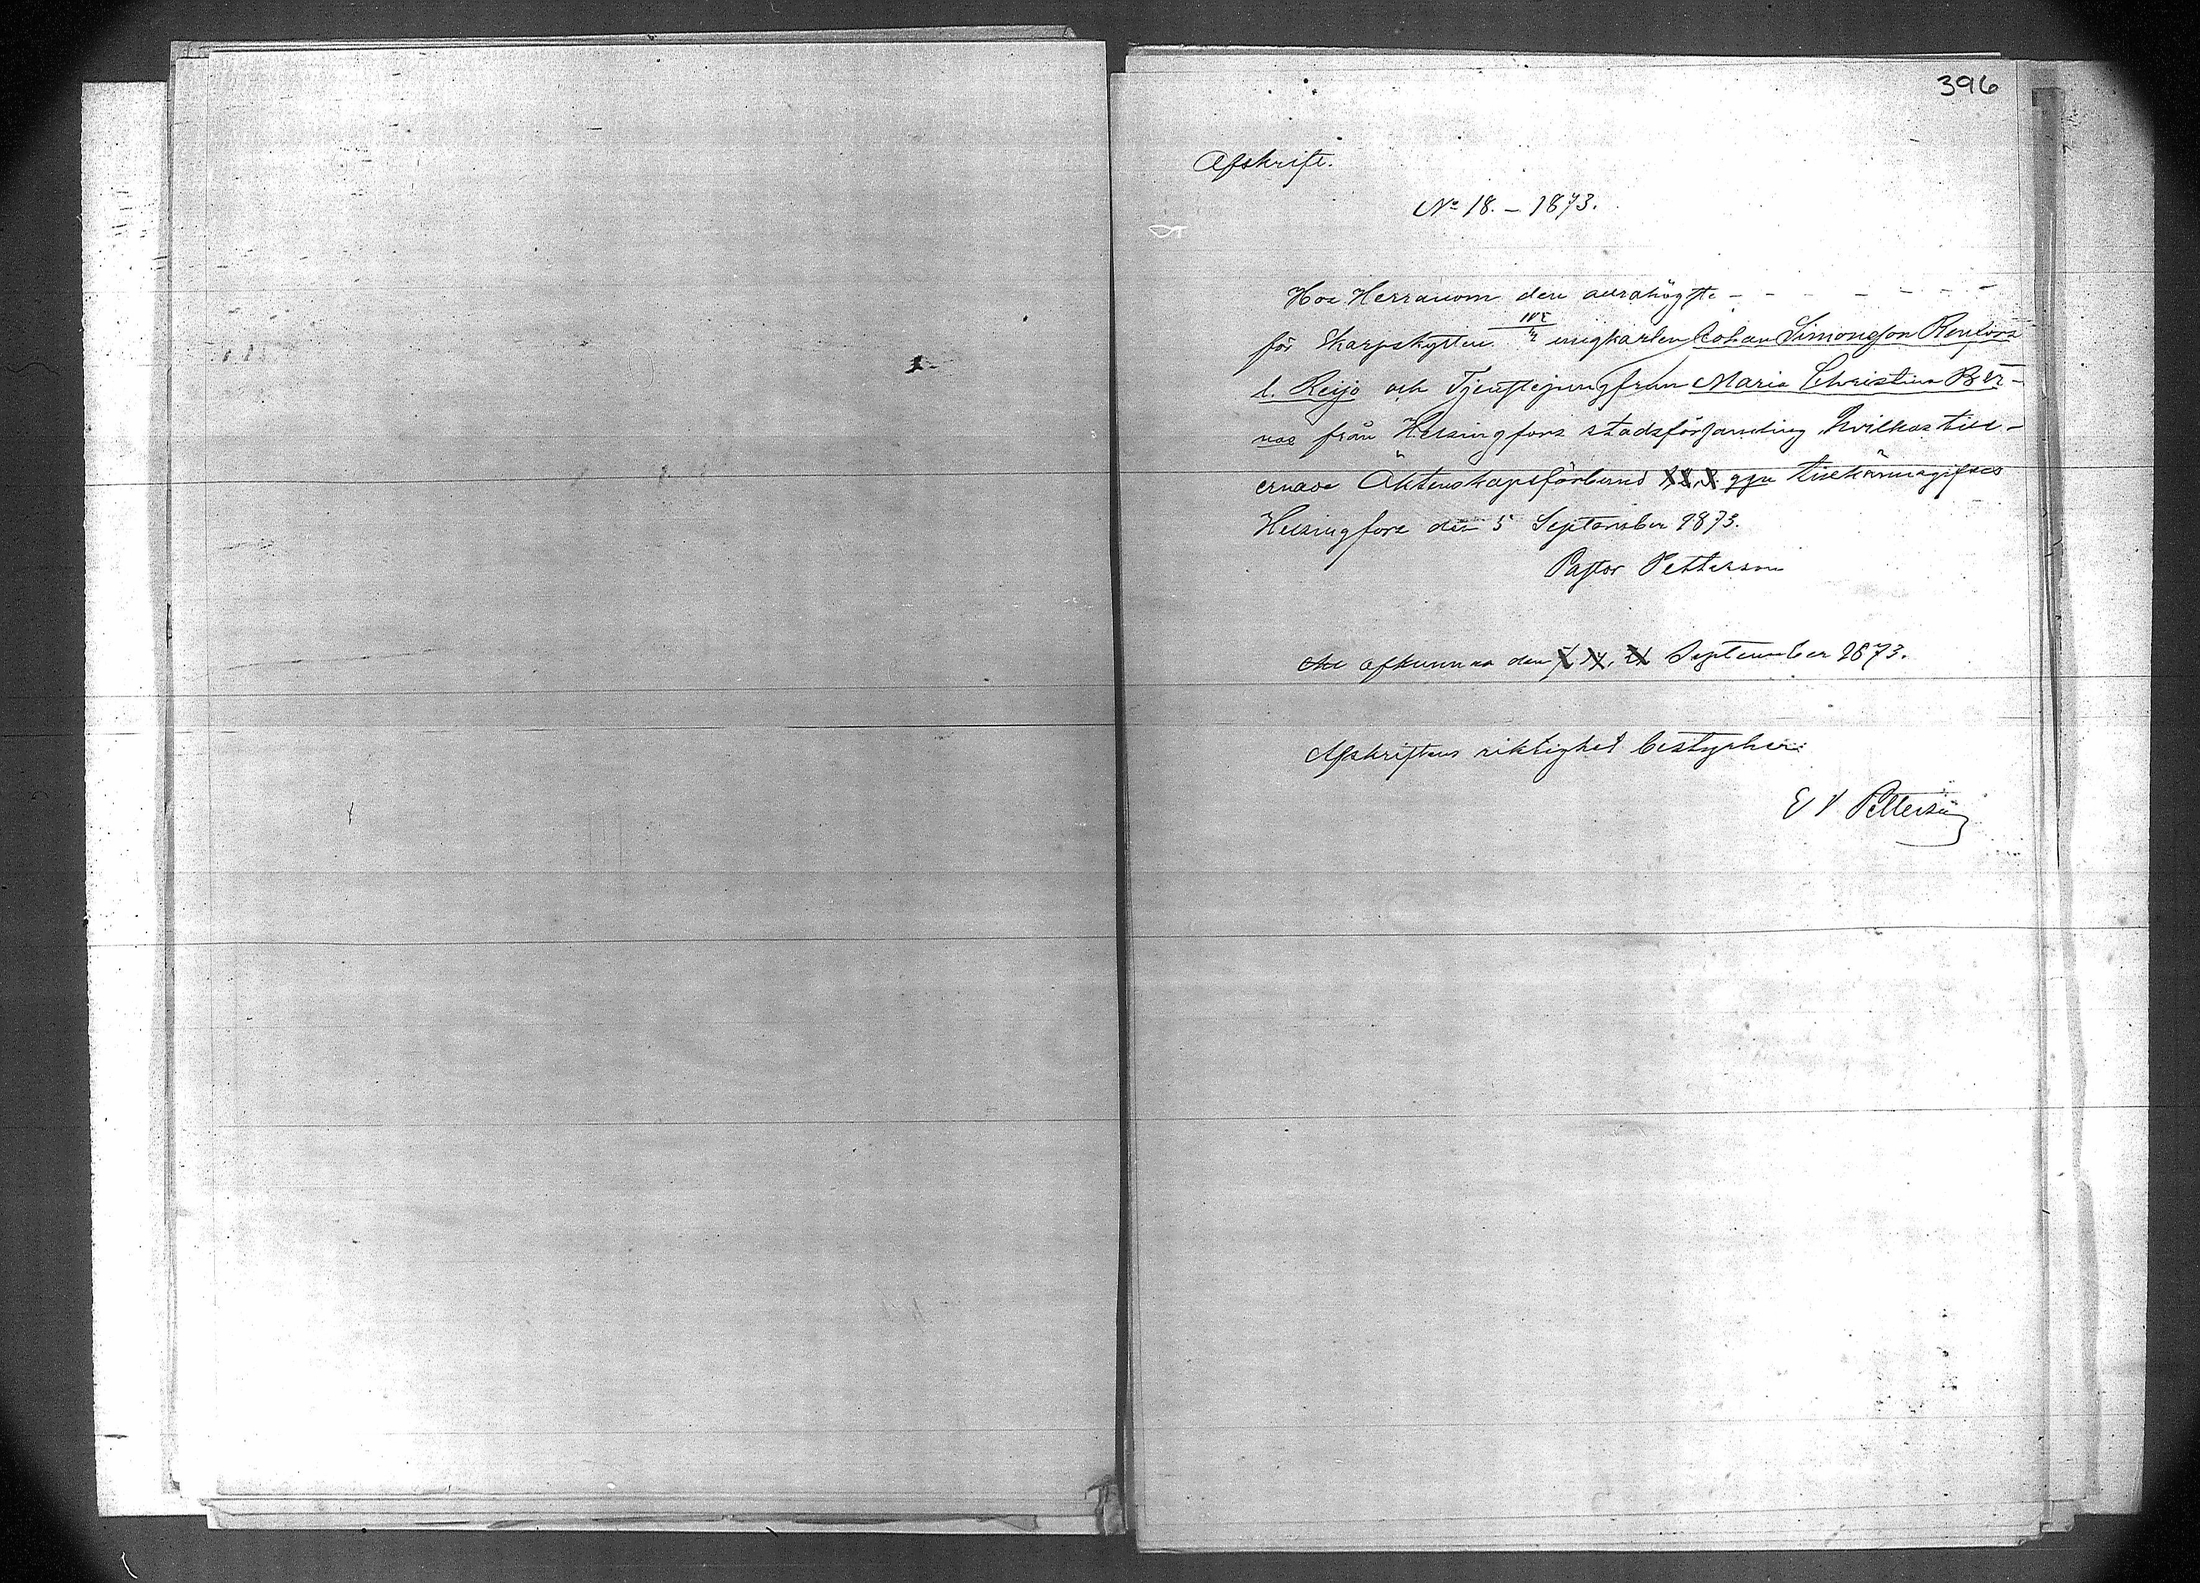 396
Afskrift.
No 18. – 1873.
Hos Herranom den aurahögste – – – – – –
för Skarpskytten ungkarlen Johan Simonsson Renfors
l. Reijo och Tjenstejungfrun Maria Christina Ber-
nas från Helsingfors stadsförsamling hvilkas till-
ernade Äktenskapsförbund X X, X ggn tillkännagifves
Helsingfors den 5 September 1873.
Pastor Petterson
afkunnas den September 1873.
Afskriftens riktighet bestyrker:
E V Petterson